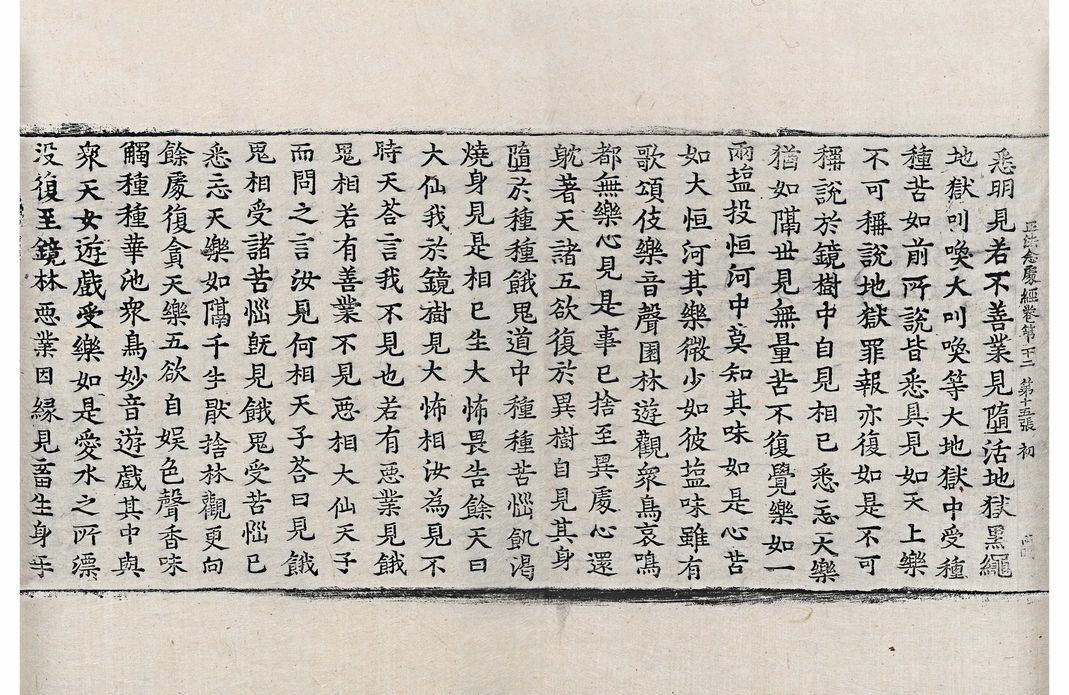 悉明見若不善業見墮活地獄黑繩
正法念處經卷第二十二 第十五張 初
地獄叫喚大叫喚等大地獄中受種
種苦如前所說皆悉具見如天上樂
不可稱說地獄罪報亦復如是不可
稱說於鏡樹中自見相已悉忘大樂
猶如隔世見無量苦不復覺樂如一
兩塩投恒河中莫知其味如是心苦
如大恒河其樂微少如彼塩味雖有
歌頌伎樂音聲園林遊觀衆鳥哀鳴
都無樂心見是事已捨至異處心還
躭著天諸五欲復於異樹自見其身
隨於種種餓鬼道中種種苦惱飢渴
燒身見是相已生大怖畏告餘天曰
大仙我於鏡樹見大怖相汝為見不
時天荅言我不見也若有惡業見餓
鬼相若有善業不見惡相大仙天子
而問之言汝見何相天子荅曰見餓
鬼相受諸苦惱旣見餓鬼受苦惱已
悉忘天樂如隔千生猒捨林觀更向
餘處復貪天樂五欲自娛色聲香味
觸種種華池衆鳥妙音遊戲其中與
衆天女遊戲受樂如是愛水之所漂
没復至鏡林惡業因緣見畜生身乎